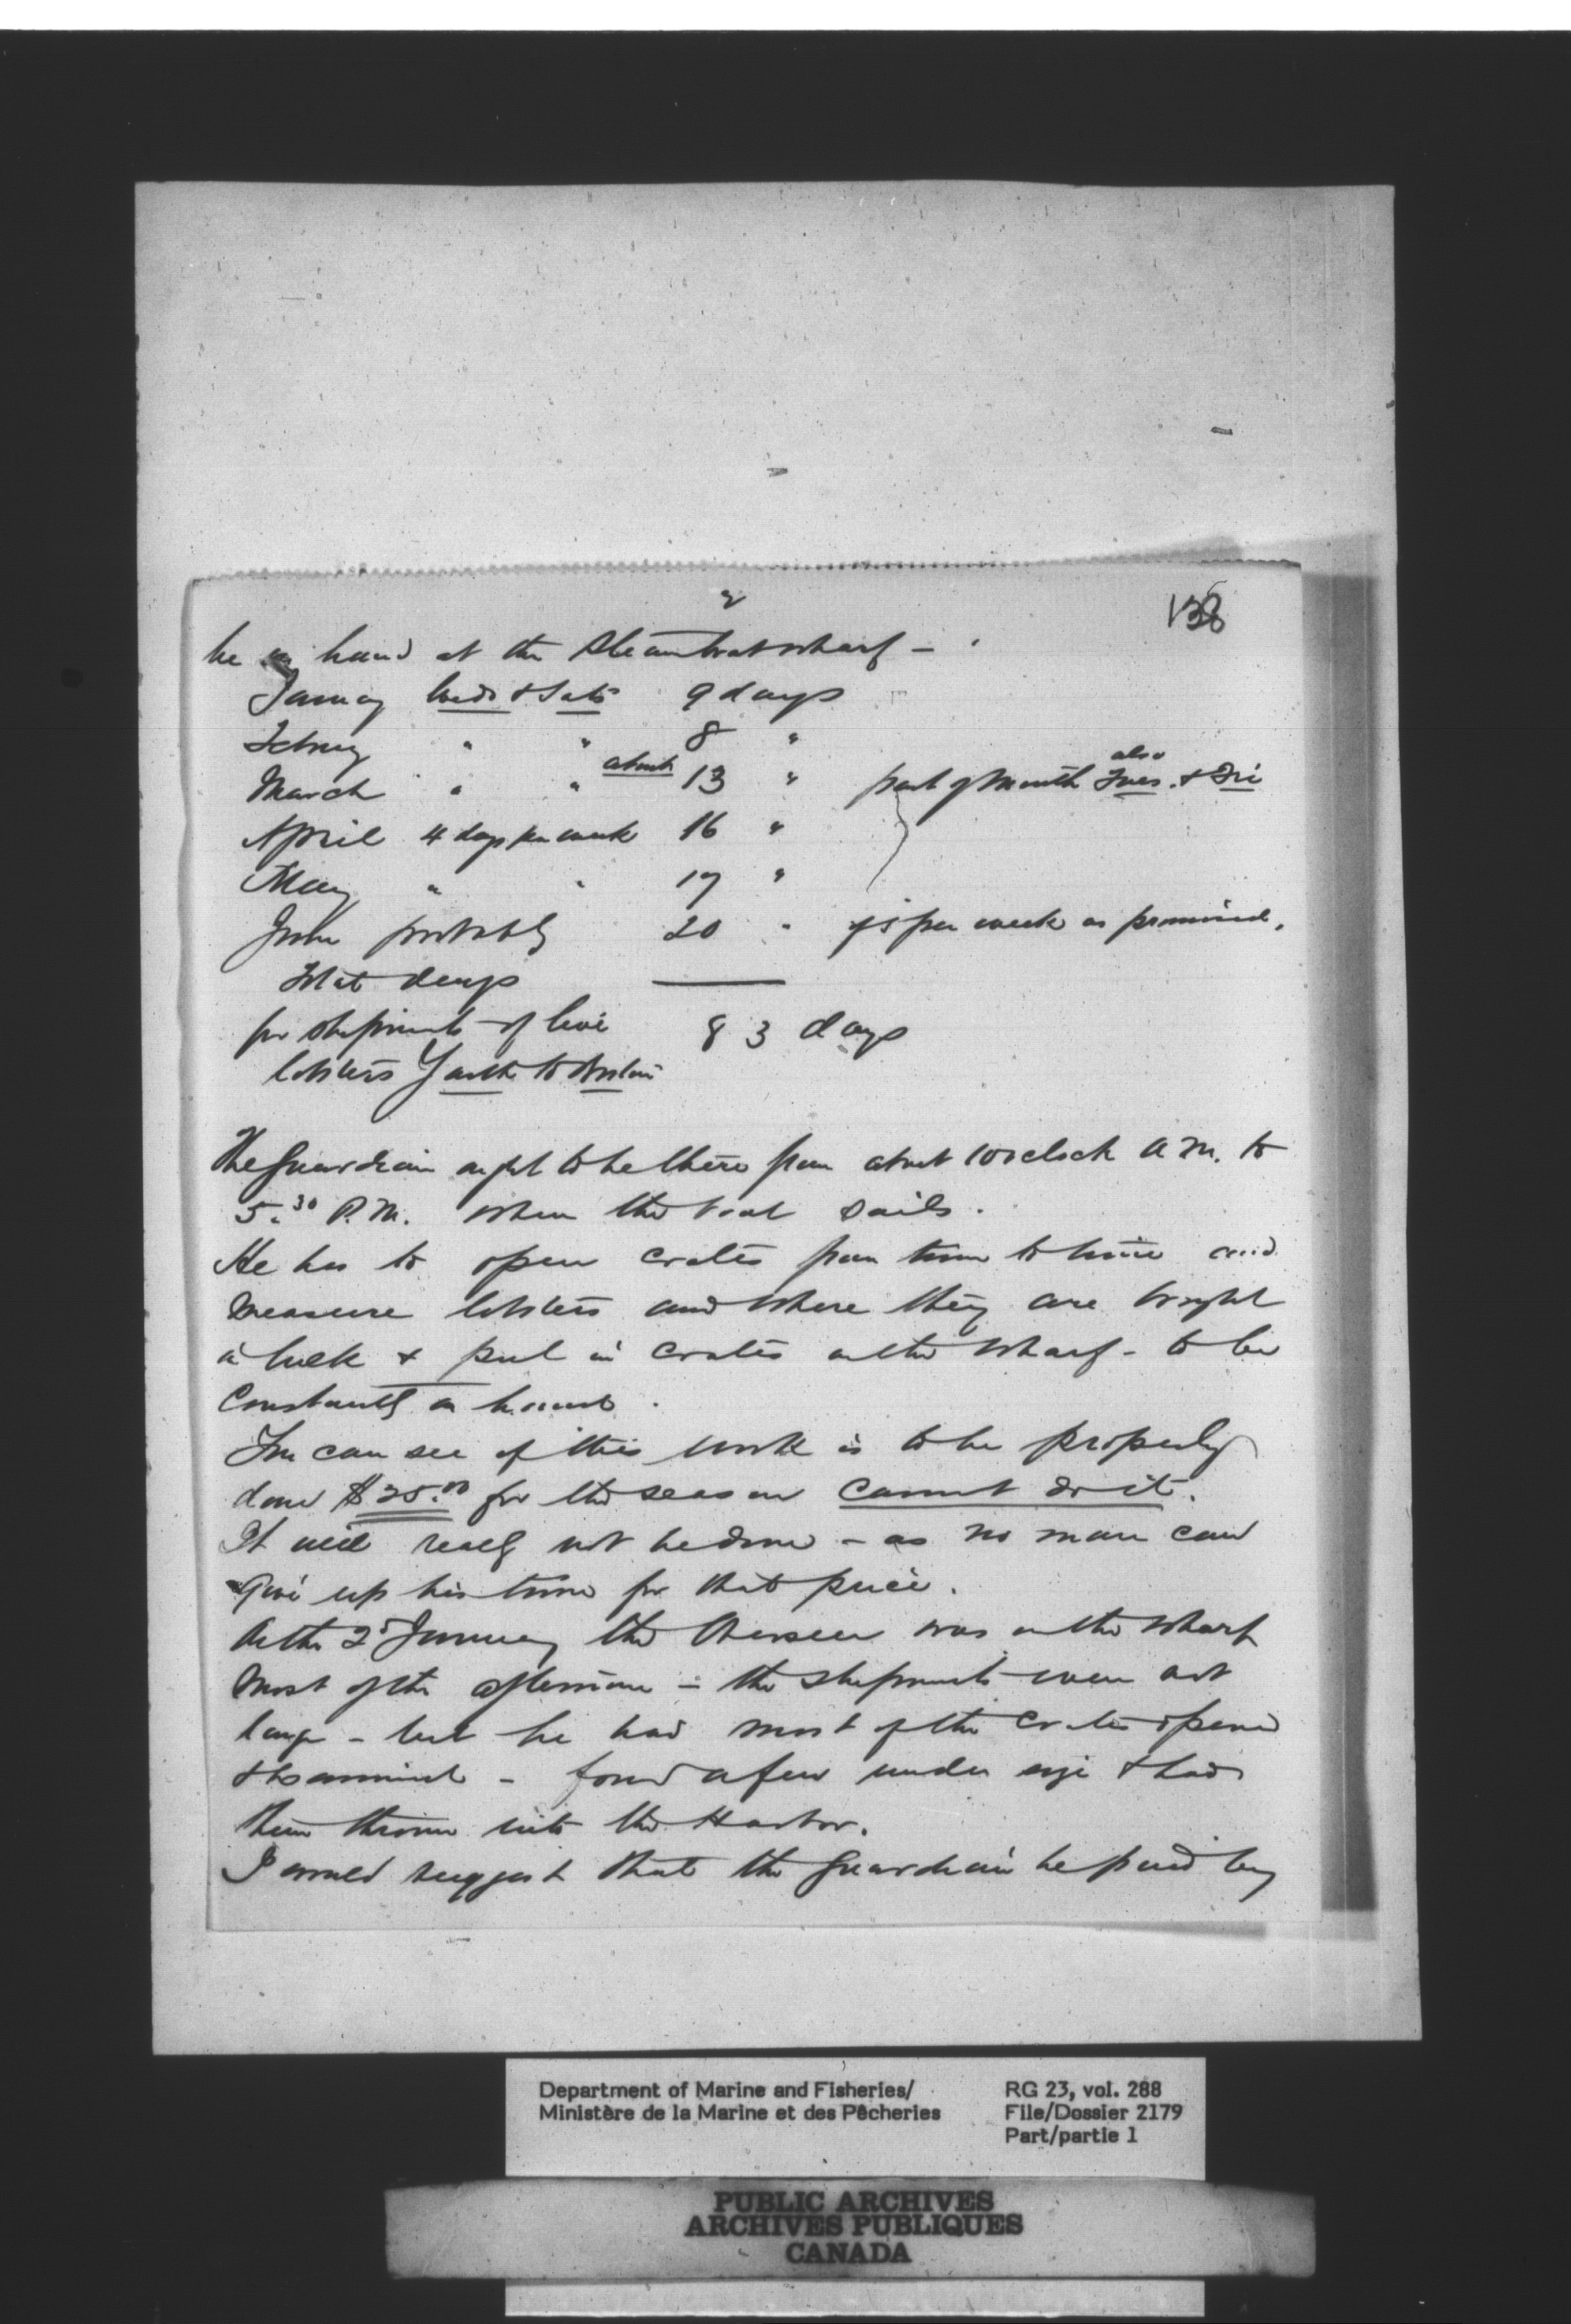 2
138
be on hand at the Steamboat Wharf -
January Weds & Sats 9 days
Februy " " 8 "
March " " about 13 " part of Month also Tues. & Fri
April 4 days per week 16 "
May " " 17 "
June probably 20 " if 5 per week as promised.
Total days
for shipments of live 83 days
lobsters Yarth to Boston
The Guardian ought to be there from about 10 oclock A.M. to
5.30 P.M. When the boat sails.
He has to open crates from time to time and
measure lobsters and where they are brought
in bulk & put in crates on the Wharf - to be
Constantly on hand.
You can see if this work is to be properly
done $25.00 for the season cannot do it.
It will really not be done - as no man can
give up his time for that price.
On the 2d January the Overseer was on the Wharf
Most of the afternoon - the shipments were not
large - but he had most of the Crates opened
& examined - found a few under size & had
them thrown into the Harbor.
I would suggest that the Guardian be paid by
Department of Marine and Fisheries/
Ministère de la Marine et des Pêcheries
RG 23, vol. 288
File/Dossier 2179
Part/partie 1
PUBLIC ARCHIVES
ARCHIVES PUBLIQUES
CANADA